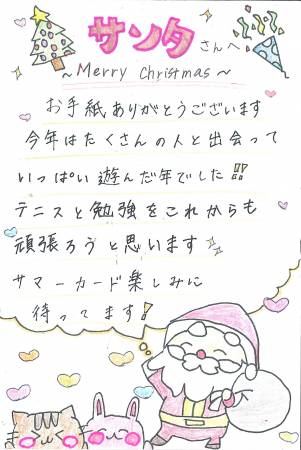 サンタさんへ
～Merry Christmas～
お手紙ありがとうございます
今年はたくさんの人と出会って
いっぱい遊んだ年でした!!
テニスと勉強をこれからも
頑張ろうと思います
サマーカード楽しみに
待ってます!